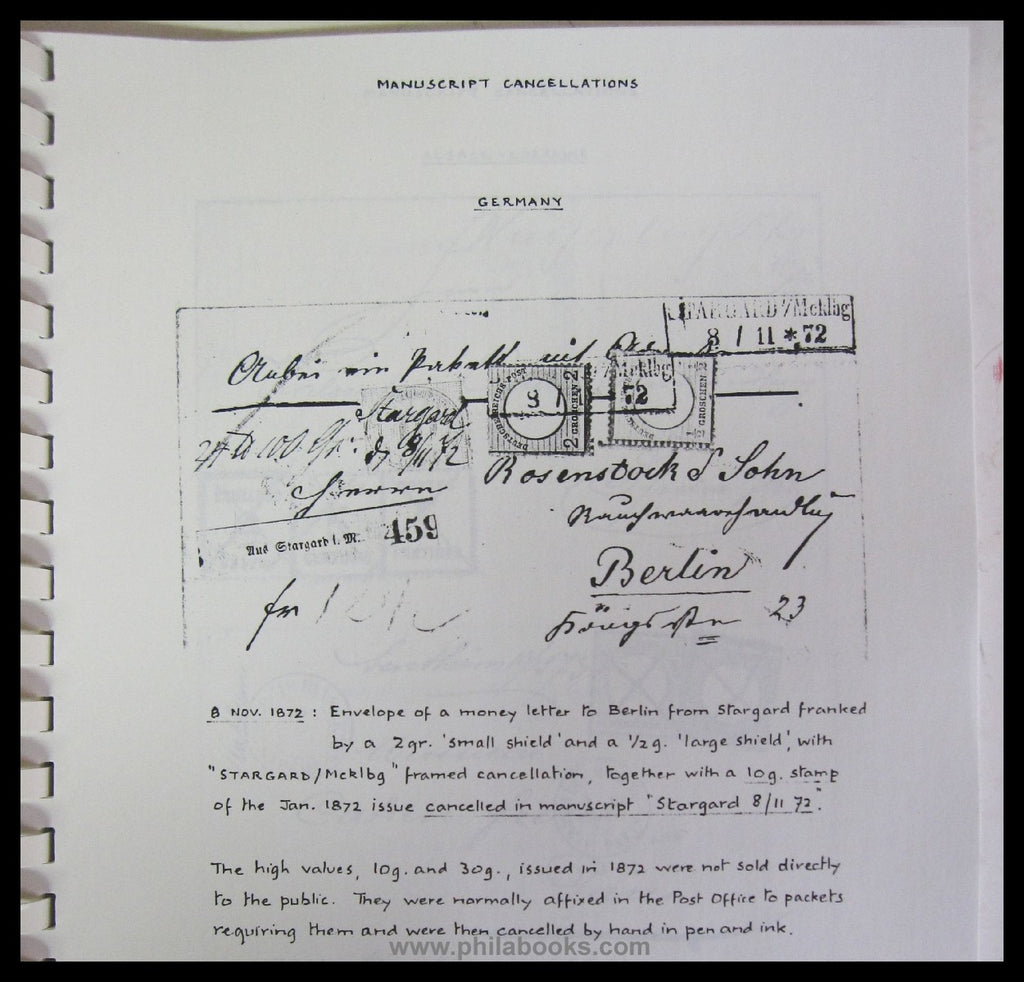 MANUSCRIPT CANCELLATIONS
GERMANY
STARGARD i/Mcklbg
8 / 11 * 72
Anbei ein Paket mit
i/Mcklbg
8 /
72
DEUTSCHE REICHS-POST
2 GROSCHEN 2
GROSCHEN
Stargard
d 8/11 72
Herrn
Rosenstock & Sohn
Rauchwaarenhandlung
Aus Stargard i. M. 459
Berlin
fr
Königsstr 23
8 NOV. 1872 : Envelope of a money letter to Berlin from Stargard franked
by a 2gr. 'small shield' and a 1/2 g. 'large shield', with
"STARGARD/Mcklbg" framed cancellation, together with a 10g. stamp
of the Jan. 1872 issue cancelled in manuscript "Stargard 8/11 72".
The high values, 10g. and 30g., issued in 1872 were not sold directly
to the public. They were normally affixed in the Post Office to packets
requiring them and were then cancelled by hand in pen and ink.
www.philabooks.com